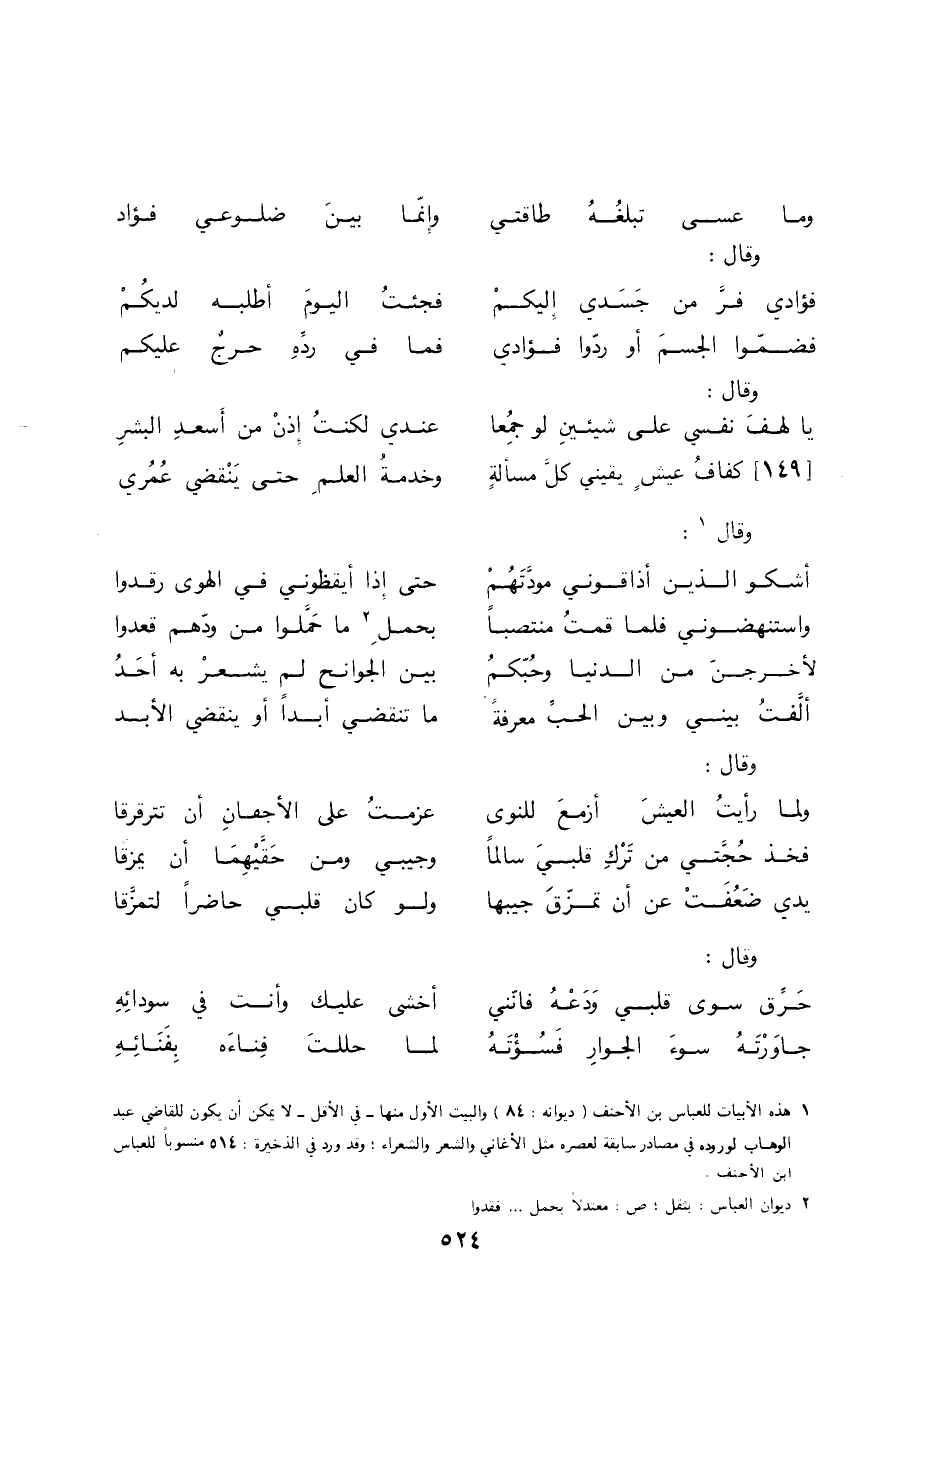 وما عسى تبلغُهُ طاقتي وإنّما بينَ ضلوعي فؤاد
وقال :
فؤادي فرَّ من جَسَدي إليكمْ فجئتُ اليومَ أطلبه لديكُمْ
فضمّوا الجسمَ أو ردّوا فؤادي فما في ردِّهِ حرجٌ عليكم
وقال :
يا لهفَ نفسي على شيئينِ لو جُمعا عندي لكنتُ إذنْ من أسعدِ البشرِ
[١٤٩] كفافُ عيشٍ يقيني كلَّ مسألةٍ وخدمةُ العلمِ حتى يَنْقضي عُمُري
وقال ١ :
أشكو الذين أذاقوني مودّتَهُمْ حتى إذا أيقظوني في الهوى رقدوا
واستنهضوني فلما قمتُ منتصباً بحملِ ٢ ما حَمَّلوا من ودّهم قعدوا
لأخرجنَ من الدنيا وحُبّكمُ بين الجوانح لم يشعرْ به أحَدُ
ألَّفتُ بيني وبين الحبِّ معرفةً ما تنقضي أبداً أو ينقضي الأبد
وقال :
ولما رأيتُ العيشَ أزمعَ للنوى عزمتُ على الأجفانِ أن تترقرقا
فخذ حُجَّتي من تَرْكِ قلبيَ سالماً وجيبي ومن حَقَّيْهِمَا أن يمزقا
يدي ضَعُفَتْ عن أن تمزّقَ جيبها ولو كان قلبي حاضراً لتمزَّقا
وقال :
حَرِّق سوى قلبي وَدَعْهُ فانّني أخشى عليك وأنت في سودائِهِ
جاوَرْتَهُ سوءَ الجوارِ فسُؤْتَهُ لما حللتَ فِناءَه بِفَنَائِهِ
١ هذه الأبيات للعباس بن الأحنف ( ديوانه : ٨٤ ) والبيت الأول منها ـ في الأقل ـ لا يمكن أن يكون للقاضي عبد
الوهاب لوروده في مصادر سابقة لعصره مثل الأغاني والشعر والشعراء ؛ وقد ورد في الذخيرة : ٥١٤ منسوباً للعباس
ابن الأحنف .
٢ ديوان العباس : بثقل ؛ ص : معتدلاً بحمل ... فقدوا
٥٢٤